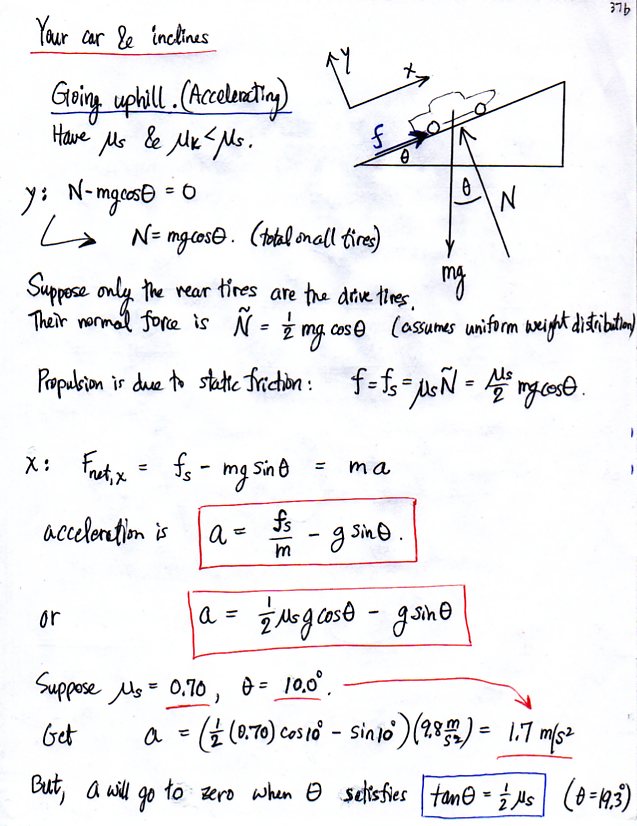 37b
Your car & inclines
Going uphill. (Accelerating)
Have μs & μk < μs.
y
x
f
θ
θ
N
mg
y: N - mg cosθ = 0
N = mg cosθ. (total on all tires)
Suppose only the rear tires are the drive tires.
Their normal force is Ñ = 1/2 mg cosθ (assumes uniform weight distribution)
Propulsion is due to static friction: f = fs = μs Ñ = μs/2 mg cosθ.
x: Fnet,x = fs - mg sinθ = ma
acceleration is a = fs/m - g sinθ.
or a = 1/2 μs g cosθ - g sinθ
Suppose μs = 0.70, θ = 10.0°.
Get a = (1/2 (0.70) cos10° - sin10°)(9.8 m/s²) = 1.7 m/s²
But, a will go to zero when θ satisfies tanθ = 1/2 μs (θ = 19.3°)